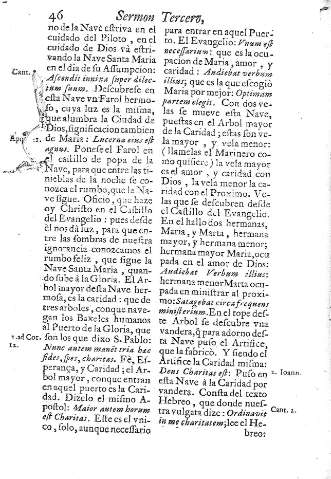 46 Sermon Tercero,
no de la Nave estriva en el
cuidado del Piloto, en el
cuidado de Dios và estri-
vando la Nave Santa Maria
en el dia de su Assumpcion:
Cant.
Ascendit innixa super dilec-
tum suum. Descubrese en
esta Nave vn Farol hermo-
so, cuya luz es la misma,
que alumbra la Ciudad de
Dios, significacion tambien
Apoc. 21.
de Maria: Lucerna eius est
agnus. Ponese el Farol en
el castillo de popa de la
Nave, para que entre las ti-
nieblas de la noche se co-
nozca el rumbo, que la Na-
ve sigue. Oficio, que haze
oy Christo en el Castillo
del Evangelio: pues desde
èl nos dà luz, para que en-
tre las sombras de nuestra
ignorancia conozcamos el
rumbo feliz, que sigue la
Nave Santa Maria, quan-
do sube à la Gloria. El Ar-
bol mayor desta Nave her-
mosa, es la caridad: que de
tres arboles, conque nave-
gen los Baxeles humanos
al Puerto de la Gloria, que
1. ad Cor.
son los que dixo S. Pablo:
Nunc autem manet tria hæc
fides, spes, charitas. Fè, Es-
perança, y Caridad; el Ar-
bol mayor, conque entran
en aquel puerto es la Cari-
dad. Dizelo el mismo A-
postol: Maior autem horum
est Charitas. Este es el vni-
co, solo, aunque necessario
para entrar en aquel Puer-
to. El Evangelio: Vnum est
necessarium: que es la ocu-
pacion de Maria, amor, y
caridad: Audiebat verbum
illius; que es la que escogiò
Maria por mejor: Optimam
partem elegit. Con dos ve-
las se mueve esta Nave,
puestas en el Arbol mayor
de la Caridad; estas son ve-
la mayor, y vela menor:
(llamelas el Marinero co-
mo quisiere) la vela mayor
es el amor, y caridad con
Dios, la vela menor la ca-
ridad con el Proximo. Ve-
las que se descubren desde
el Castillo del Evangelio.
En el hallo dos hermanas,
Maria, y Marta, hermana
mayor, y hermana menor;
hermana mayor Maria, ocu
pada en el amor de Dios:
Audiebat Verbum illius;
hermana menor Marta ocu-
pada en ministrar al proxi-
mo: Satagebat circa frequens
ministerium. En el tope des-
te Arbol se descubre vna
vandera, q̃ para adorno des-
ta Nave puso el Artifice,
que la fabricò. Y siendo el
Artifice la Caridad misma:
1. Ioann.
Deus Charitas est: Puso en
esta Nave à la Caridad por
vandera. Consta del texto
Hebreo, que donde nues-
Cant. 2.
tra vulgata dize: Ordinavit
in me charitatem; lee el He-
breo: